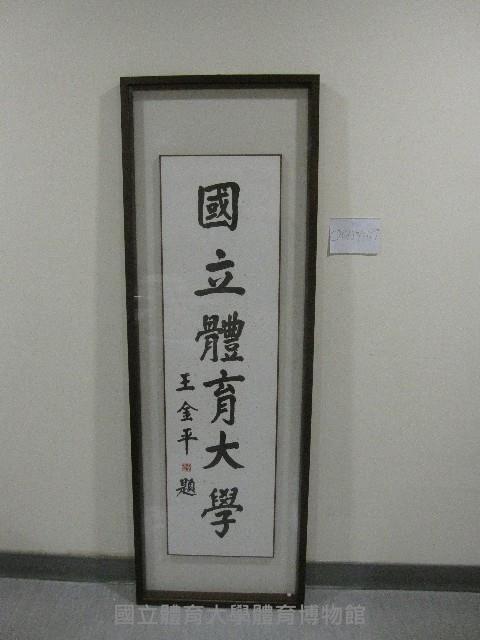 國立體育大學
王金平題
國立體育大學體育博物館